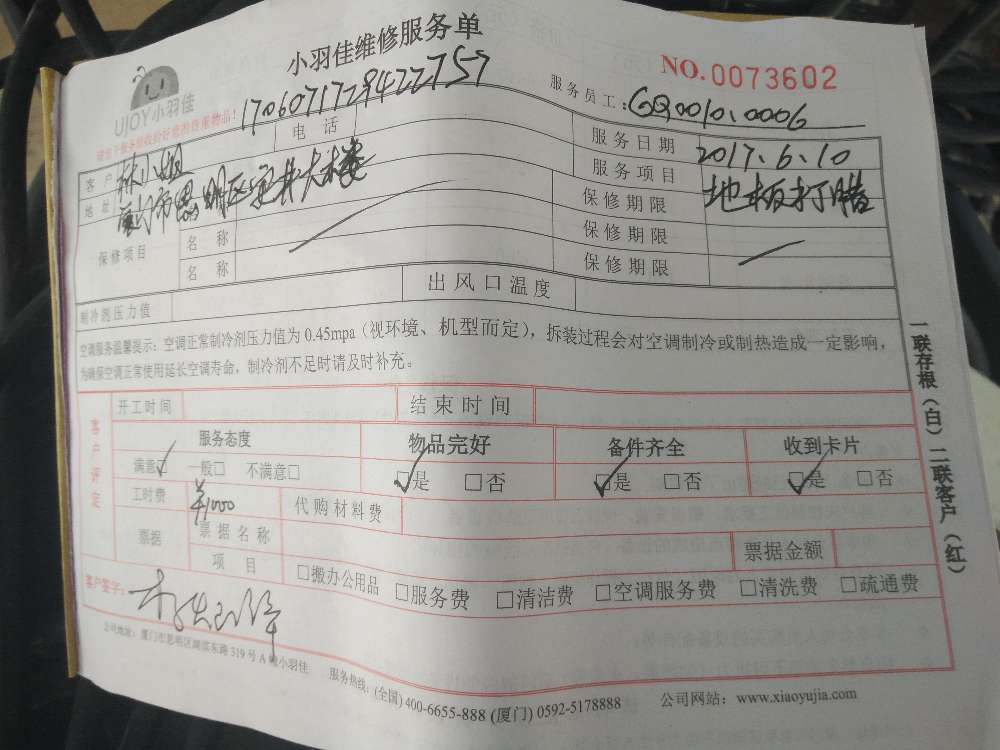 小羽佳维修服务单
UJOY小羽佳
NO.0073602
1706071729422757
服务员工:GQ00101.0006
客户 林小姐 电话 服务日期 2017.6.10
地址 厦门市思明区 大楼 服务项目 地板打腊
保修项目 保修期限
名称 保修期限
名称 保修期限
制冷剂压力值 出风口温度
空调服务温馨提示:空调正常制冷剂压力值为0.45mpa(视环境、机型而定),拆装过程会对空调制冷或制热造成一定影响,
为确保空调正常使用延长空调寿命,制冷剂不足时请及时补充。
客户评定
开工时间 结束时间
服务态度 物品完好 备件齐全 收到卡片
满意☑ 一般□ 不满意□ ☑是 □否 ☑是 □否 ☑是 □否
工时费 ¥1000 代购材料费
票据 票据名称 票据金额
项目 □搬办公用品 □服务费 □清洁费 □空调服务费 □清洗费 □疏通费
客户签字:
公司地址:厦门市思明区湖滨东路319号A幢小羽佳 服务热线:(全国)400-6655-888 (厦门)0592-5178888 公司网站:www.xiaoyujia.com
一联存根(白)二联客户(红)